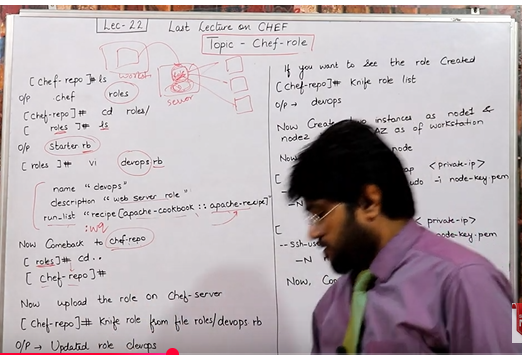 Lec-22
Last Lecture on CHEF
Topic - Chef-role
worker
server
[chef-repo]# ls
O/P chef roles
[chef-repo]# cd roles/
[roles]# ls
O/P starter.rb
[roles]# vi devops.rb
name "devops"
description "web server role"
run_list "recipe[apache-cookbook::apache-recipe]"
:wq
Now Comeback to chef-repo
[roles]# cd ..
[chef-repo]#
Now upload the role on Chef-server
[Chef-repo]# Knife role from file roles/devops.rb
O/P → Updated role devops
If you want to see the role Created
[Chef-repo]# Knife role list
O/P → devops
Now Create instances as node1 &
node2 AZ as of workstation
Now node
[ <private-ip>
-i node-key.pem
-N
[ <private-ip>
--ssh-use node-key.pem
-N
Now,